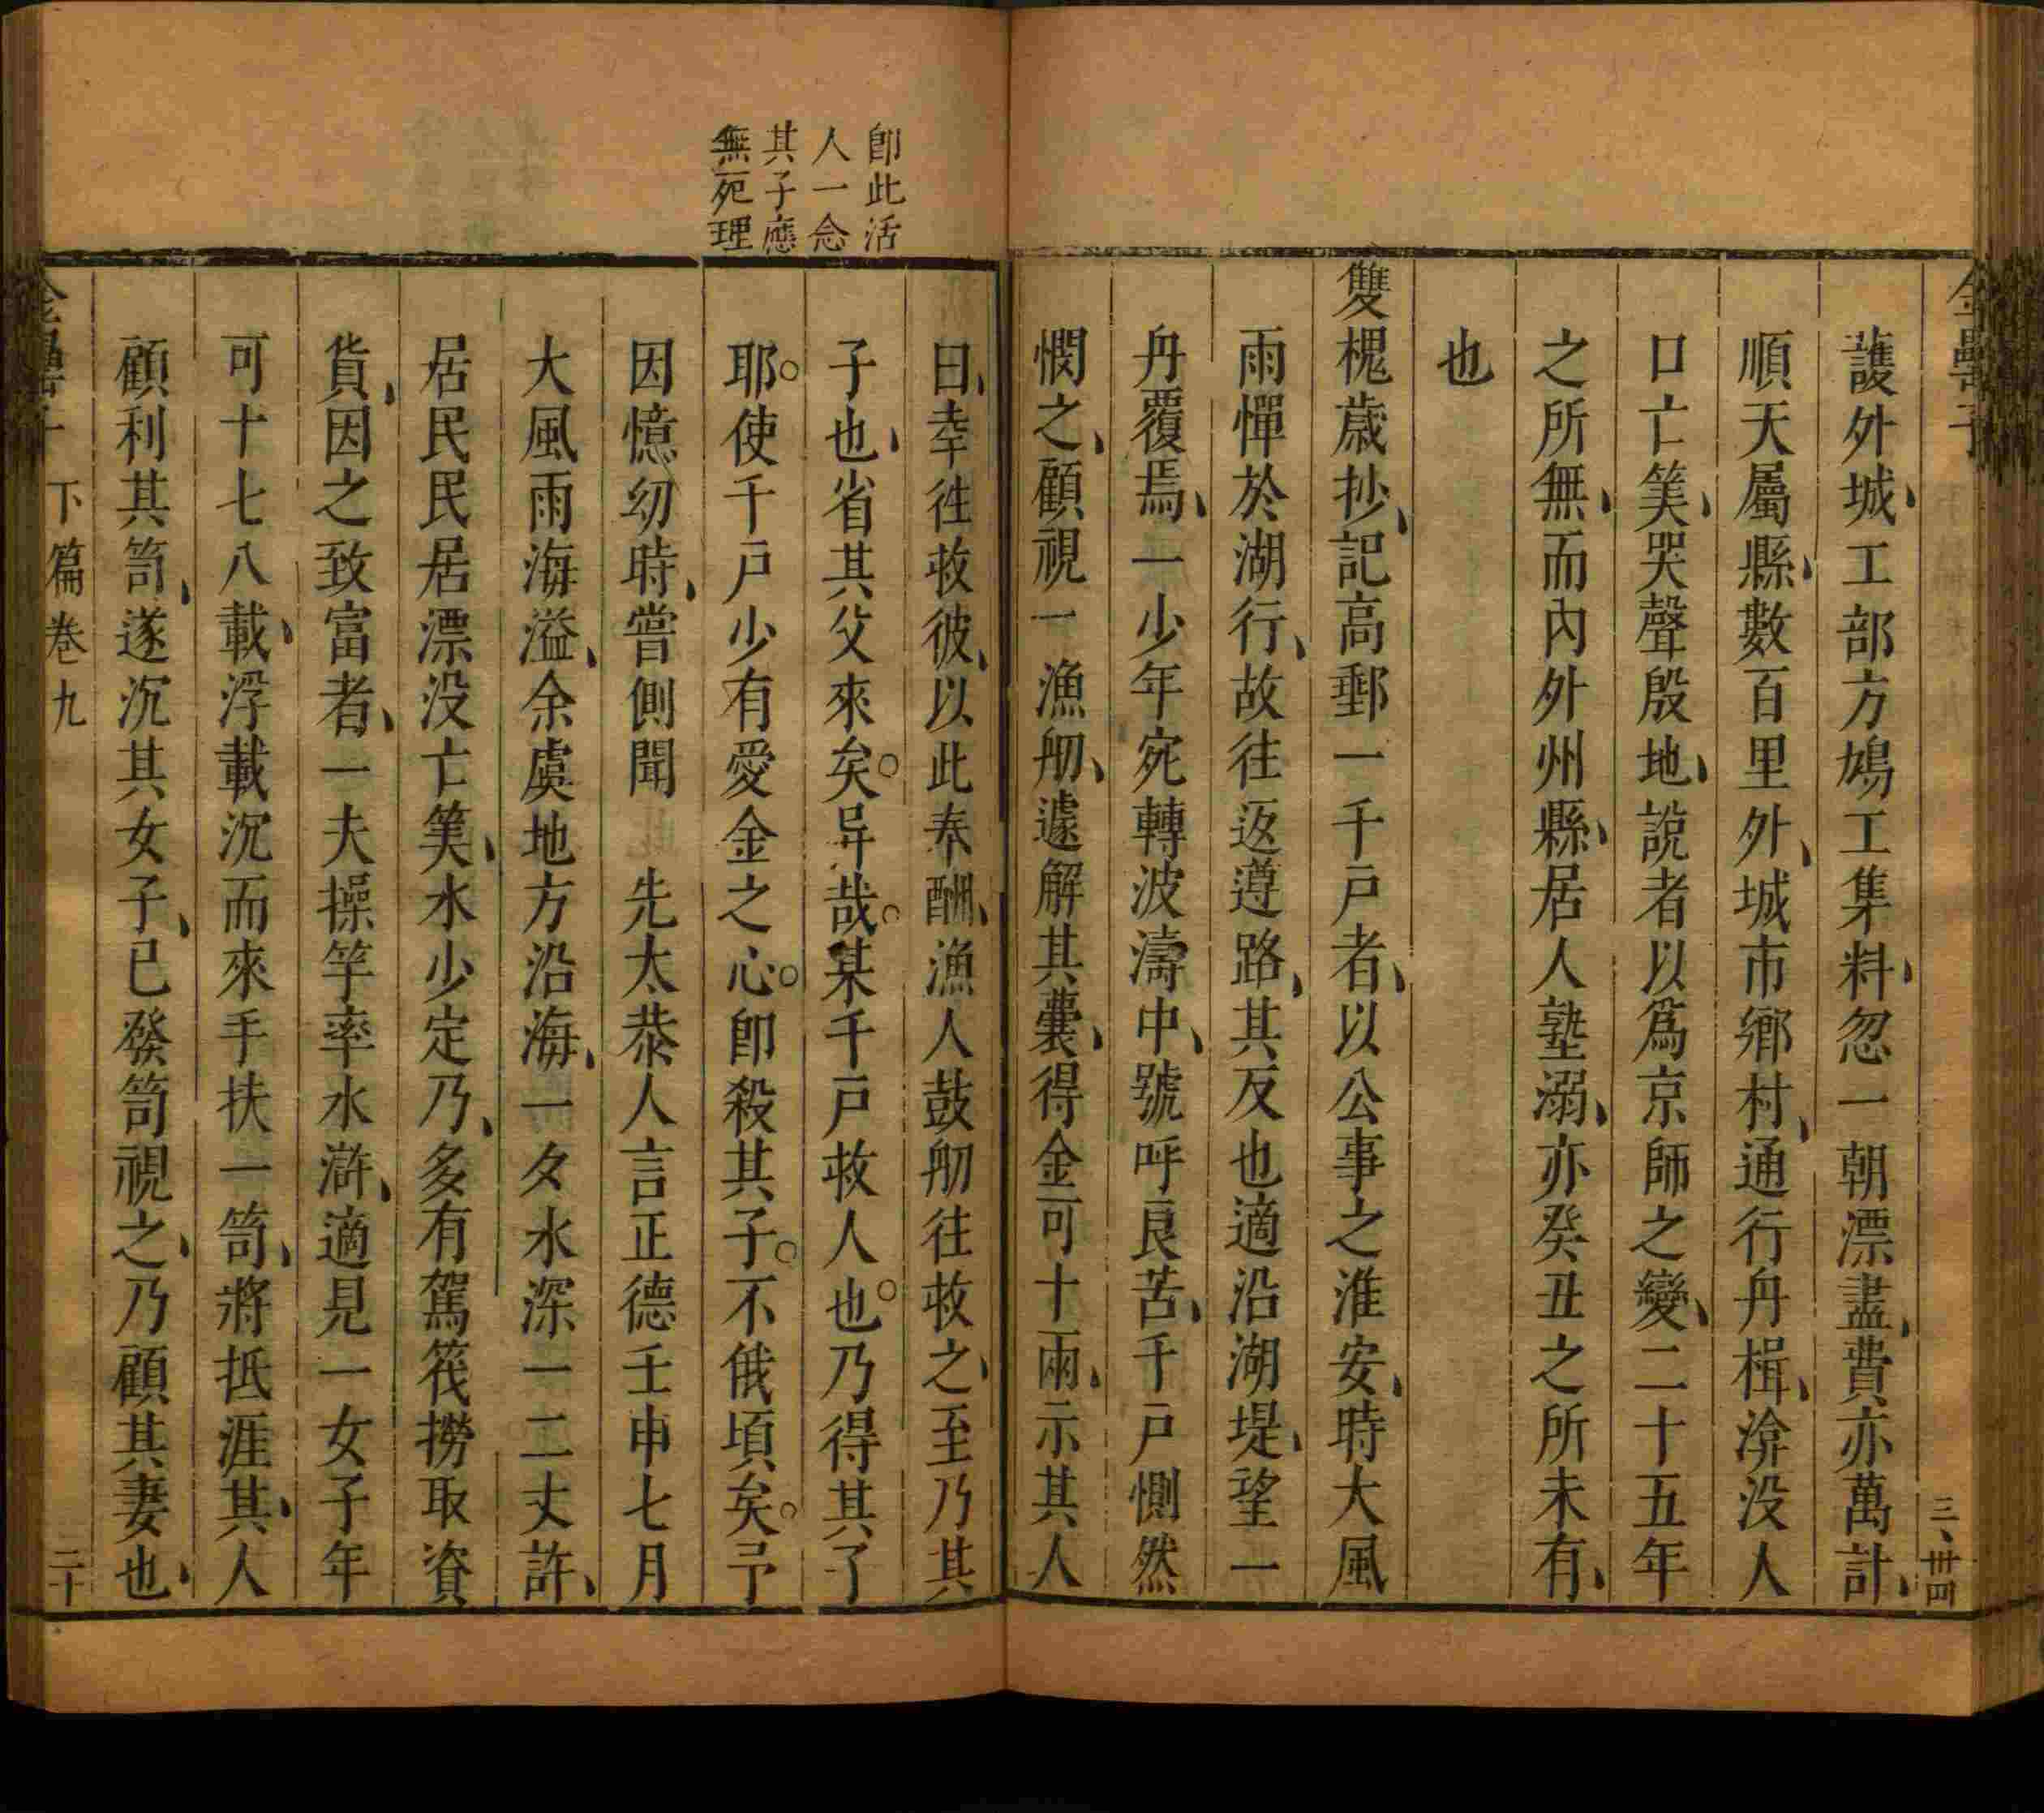 金罍子
三、卅四
護外城、工部方鳩工集料、忽一朝漂盡、費亦萬計、
順天屬縣、數百里外、城市鄉村、通行舟楫、渰没人
口亡筭、哭聲殷地、說者以爲京師之變、二十五年
之所無、而內外州縣、居人墊溺、亦癸丑之所未有、
也
雙槐歲抄、記高郵一千戸者、以公事之淮安、時大風
雨憚於湖行、故往返遵路、其反也適沿湖堤、望一
舟覆焉、一少年宛轉波濤中、號呼良苦、千戸惻然
憫之、顧視一漁舠、遽解其囊、得金可十兩、示其人
即此活
人一念
其子應
無死理
曰、幸徃救彼、以此奉酬、漁人鼓舠往救之、至乃其
子也、省其父來矣○异哉○某千戸救人也○乃得其了
耶○使千戸少有愛金之心○即殺其子○不俄頃矣○予
因憶幼時、嘗側聞　先太恭人言正德壬申七月
大風雨海溢、余虞地方沿海、一夕水深一二丈許、
居民民居漂没亡筭、水少定乃、多有駕筏撈取資
貨、因之致富者、一夫操竿率水滸、適見一女子年
可十七八載、浮載沉而來手扶一笥、將抵涯其、人
顧利其笥、遂沉其女子、已發笥視之、乃顧其妻也、
下篇卷九
二十